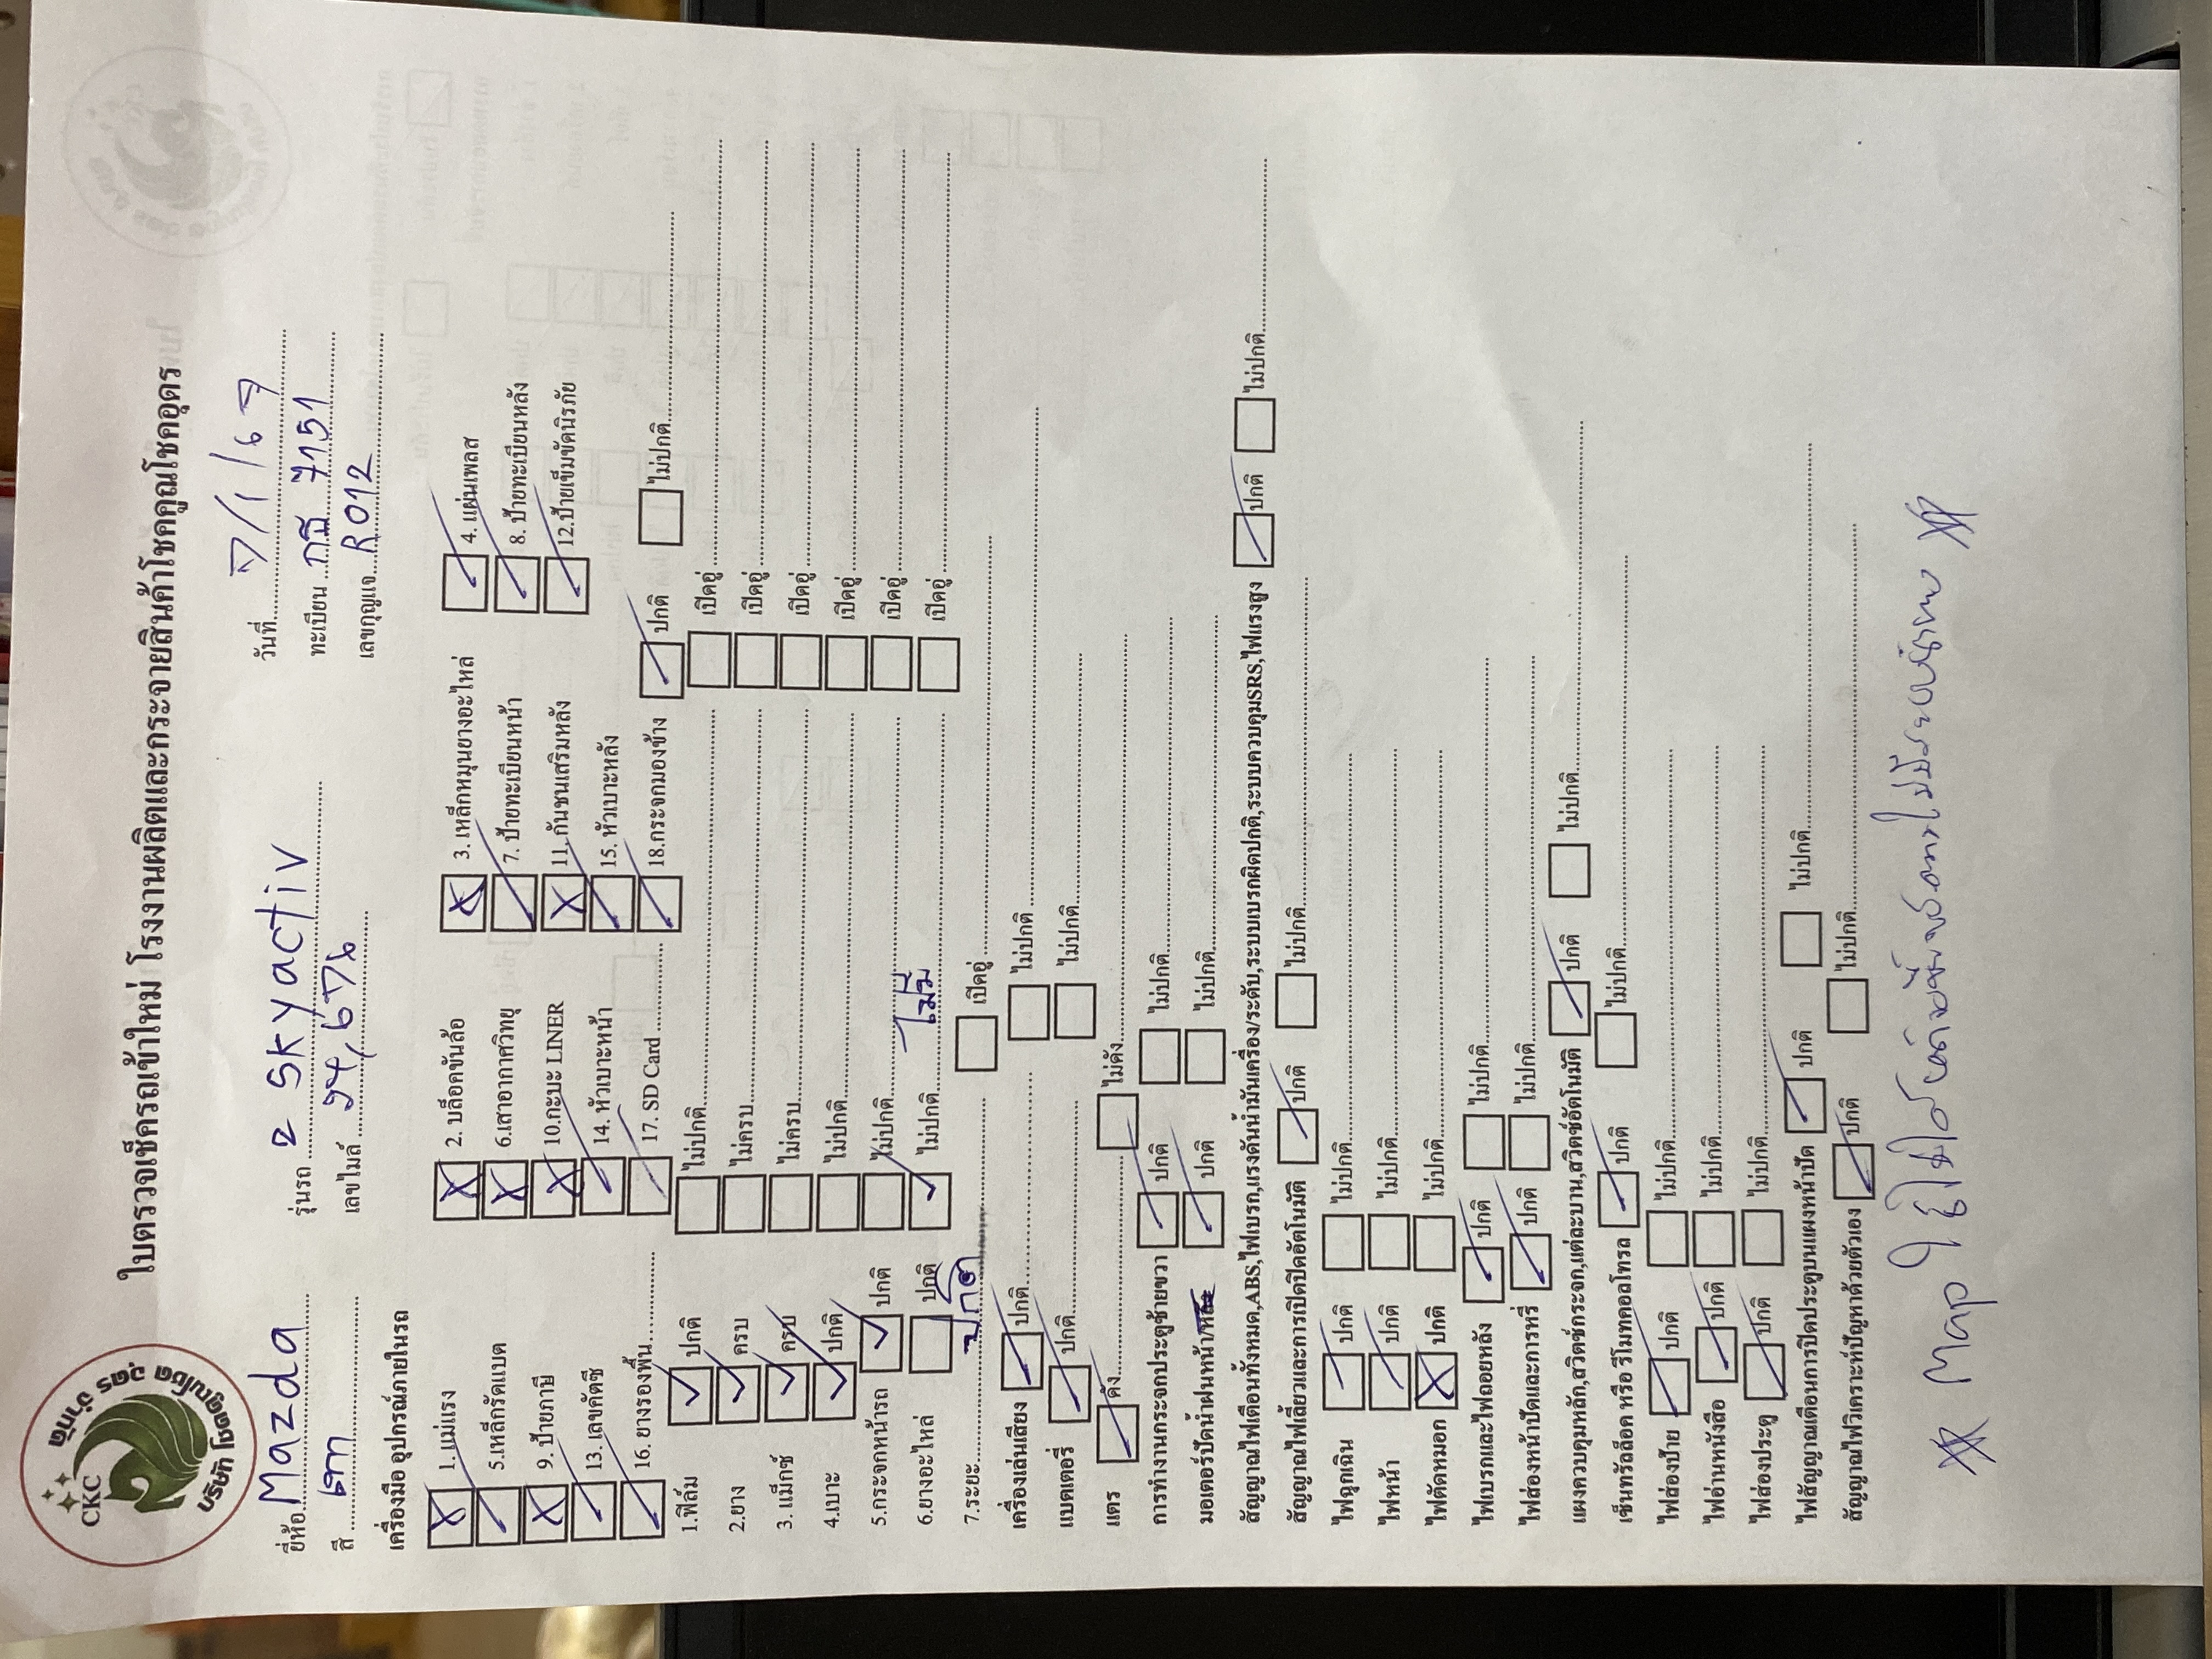 CKC
บริษัท คูณโชค อุดร จำกัด
ใบตรวจเช็ครถเข้าใหม่ โรงงานผลิตและกระจายสินค้าโชคคูณโชคอุดร
ยี่ห้อ Mazda รุ่นรถ 2 Skyactiv วันที่ 7/1/67
สี เทา เลขไมล์ 94,676 ทะเบียน 7151
เลขกุญแจ R012
เครื่องมือ อุปกรณ์ภายในรถ
1. แม่แรง 2. บล็อคขันล้อ 3. เหล็กหมุนยางอะไหล่ 4. แผ่นเพลส
5.เหล็กรัดแบต 6.เสาอากาศวิทยุ 7. ป้ายทะเบียนหน้า 8. ป้ายทะเบียนหลัง
9. ป้ายภาษี 10.กะบะ LINER 11. กันชนเสริมหลัง 12.ป้ายเข็มขัดนิรภัย
13. เลขคัตซี 14. หัวเบาะหน้า 15. หัวเบาะหลัง
16. ยางรองพื้น 17. SD Card 18.กระจกมองข้าง ปกติ ไม่ปกติ
1.ฟิล์ม ปกติ ไม่ปกติ เปิดอู่
2.ยาง ครบ ไม่ครบ เปิดอู่
3. แม็กซ์ ครบ ไม่ครบ เปิดอู่
4.เบาะ ปกติ ไม่ปกติ เปิดอู่
5.กระจกหน้ารถ ปกติ ไม่ปกติ เปิดอู่
6.ยางอะไหล่ ปกติ ไม่ปกติ ไม่มี เปิดอู่
7.ระยะ ปกติ เปิดอู่
เครื่องเล่นเสียง ปกติ ไม่ปกติ
แบตเตอรี่ ปกติ ไม่ปกติ
แตร ดัง ไม่ดัง
การทำงานกระจกประตูซ้ายขวา ปกติ ไม่ปกติ
มอเตอร์ปัดน้ำฝนหน้า/หลัง ปกติ ไม่ปกติ
สัญญาณไฟเตือนทั้งหมด,ABS,ไฟเบรก,แรงดันน้ำมันเครื่อง/ระดับ,ระบบเบรกผิดปกติ,ระบบควบคุมSRS,ไฟแรงสูง ปกติ ไม่ปกติ
สัญญาณไฟเลี้ยวและการเปิดปิดอัตโนมัติ ปกติ ไม่ปกติ
ไฟฉุกเฉิน ปกติ ไม่ปกติ
ไฟหน้า ปกติ ไม่ปกติ
ไฟตัดหมอก ปกติ ไม่ปกติ
ไฟเบรกและไฟถอยหลัง ปกติ ไม่ปกติ
ไฟส่องหน้าปัดและการหรี่ ปกติ ไม่ปกติ
แผงควบคุมหลัก,สวิตช์กระจก,แต่ละบาน,สวิตช์อัตโนมัติ ปกติ ไม่ปกติ
เซ็นทรัลล็อค หรือ รีโมทคอลโทรล ปกติ ไม่ปกติ
ไฟส่องป้าย ปกติ ไม่ปกติ
ไฟอ่านหนังสือ ปกติ ไม่ปกติ
ไฟส่องประตู ปกติ ไม่ปกติ
ไฟสัญญาณเตือนการปิดประตูบนแผงหน้าปัด ปกติ ไม่ปกติ
สัญญาณไฟวิเคราะห์ปัญหาด้วยตัวเอง ปกติ ไม่ปกติ
Map ใช้ไม่ได้